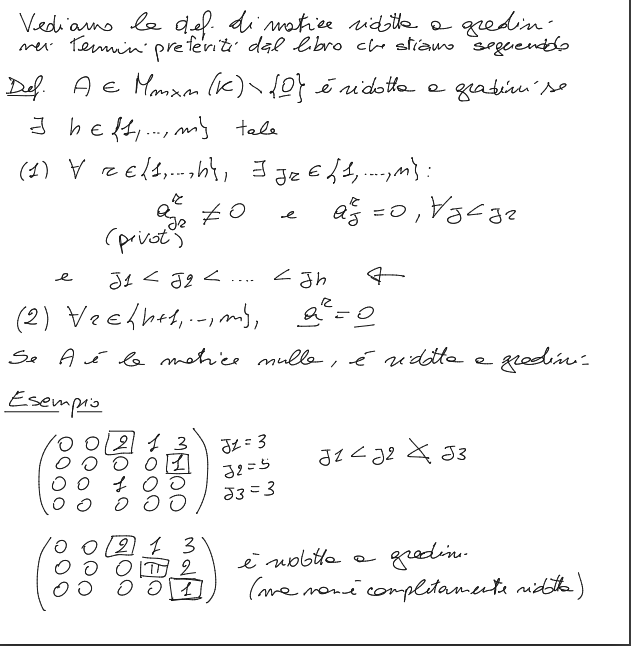 Vediamo la def. di matrice ridotta a gradini
nei termini preferiti dal libro che stiamo seguendo
Def. A ∈ Mm×n (K) \ {0} è ridotta a gradini se
∃ h ∈ {1, ..., m} tale
(1) ∀ r ∈ {1, ..., h}, ∃ jr ∈ {1, ..., n} :
a^r_jr ≠ 0 e a^r_j = 0, ∀ j < jr
(pivot)
e j1 < j2 < .... < jh ←
(2) ∀ r ∈ {h+1, .., m}, a^r = 0
Se A è la matrice nulla, è ridotta a gradini
Esempio
0 0 2 1 3 j1 = 3
0 0 0 0 1 j2 = 5 j1 < j2 ≮ j3
0 0 1 0 0 j3 = 3
0 0 0 0 0
0 0 2 1 3
0 0 0 π 2 è ridotta a gradini
0 0 0 0 1 (ma non è completamente ridotta)